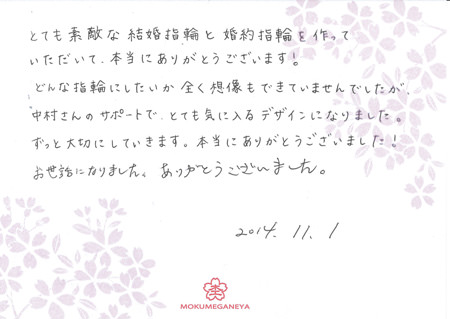 とても素敵な結婚指輪と婚約指輪を作って
いただいて、本当にありがとうございます!
どんな指輪にしたいか全く想像もできていませんでしたが、
中村さんのサポートで、とても気に入るデザインになりました。
ずっと大切にしていきます。本当にありがとうございました!
お世話になりました。ありがとうございました。
2014. 11. 1
MOKUMEGANEYA